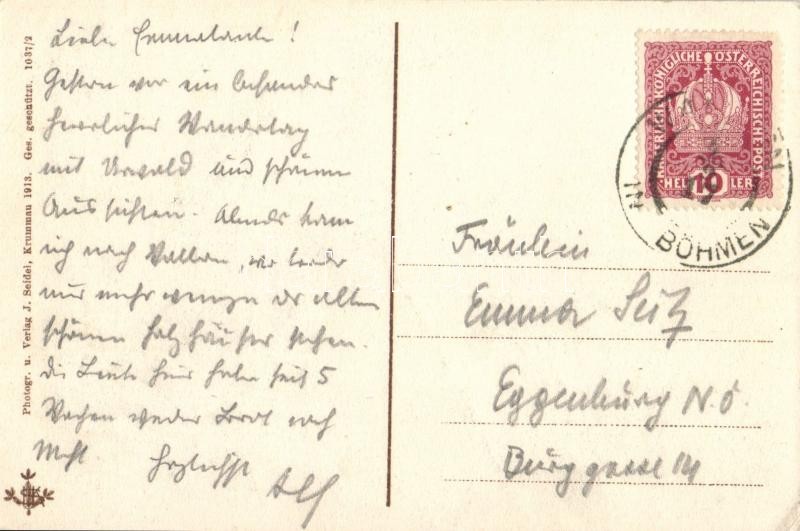 Liebe Emmatante!
Gestern war ein besonders
herrlicher Wandertag
mit Urwald und schönen
Aussichten. Abends kam
ich nach Wallern, wo leider
nur mehr wenige der alten
schönen Holzhäuser stehen.
Die Leute hier haben seit 5
Wochen weder Brot noch
Mehl. Herzlichst
Alf
Photogr. u. Verlag J. Seidel, Krummau 1913. Ges. geschützt. 1037/2
KAISERLICH KÖNIGLICHE ÖSTERREICHISCHE POST
HELLER 10
IN BÖHMEN
Fräulein
Emma Seitz
Eggenburg N.Ö.
Burggasse 14